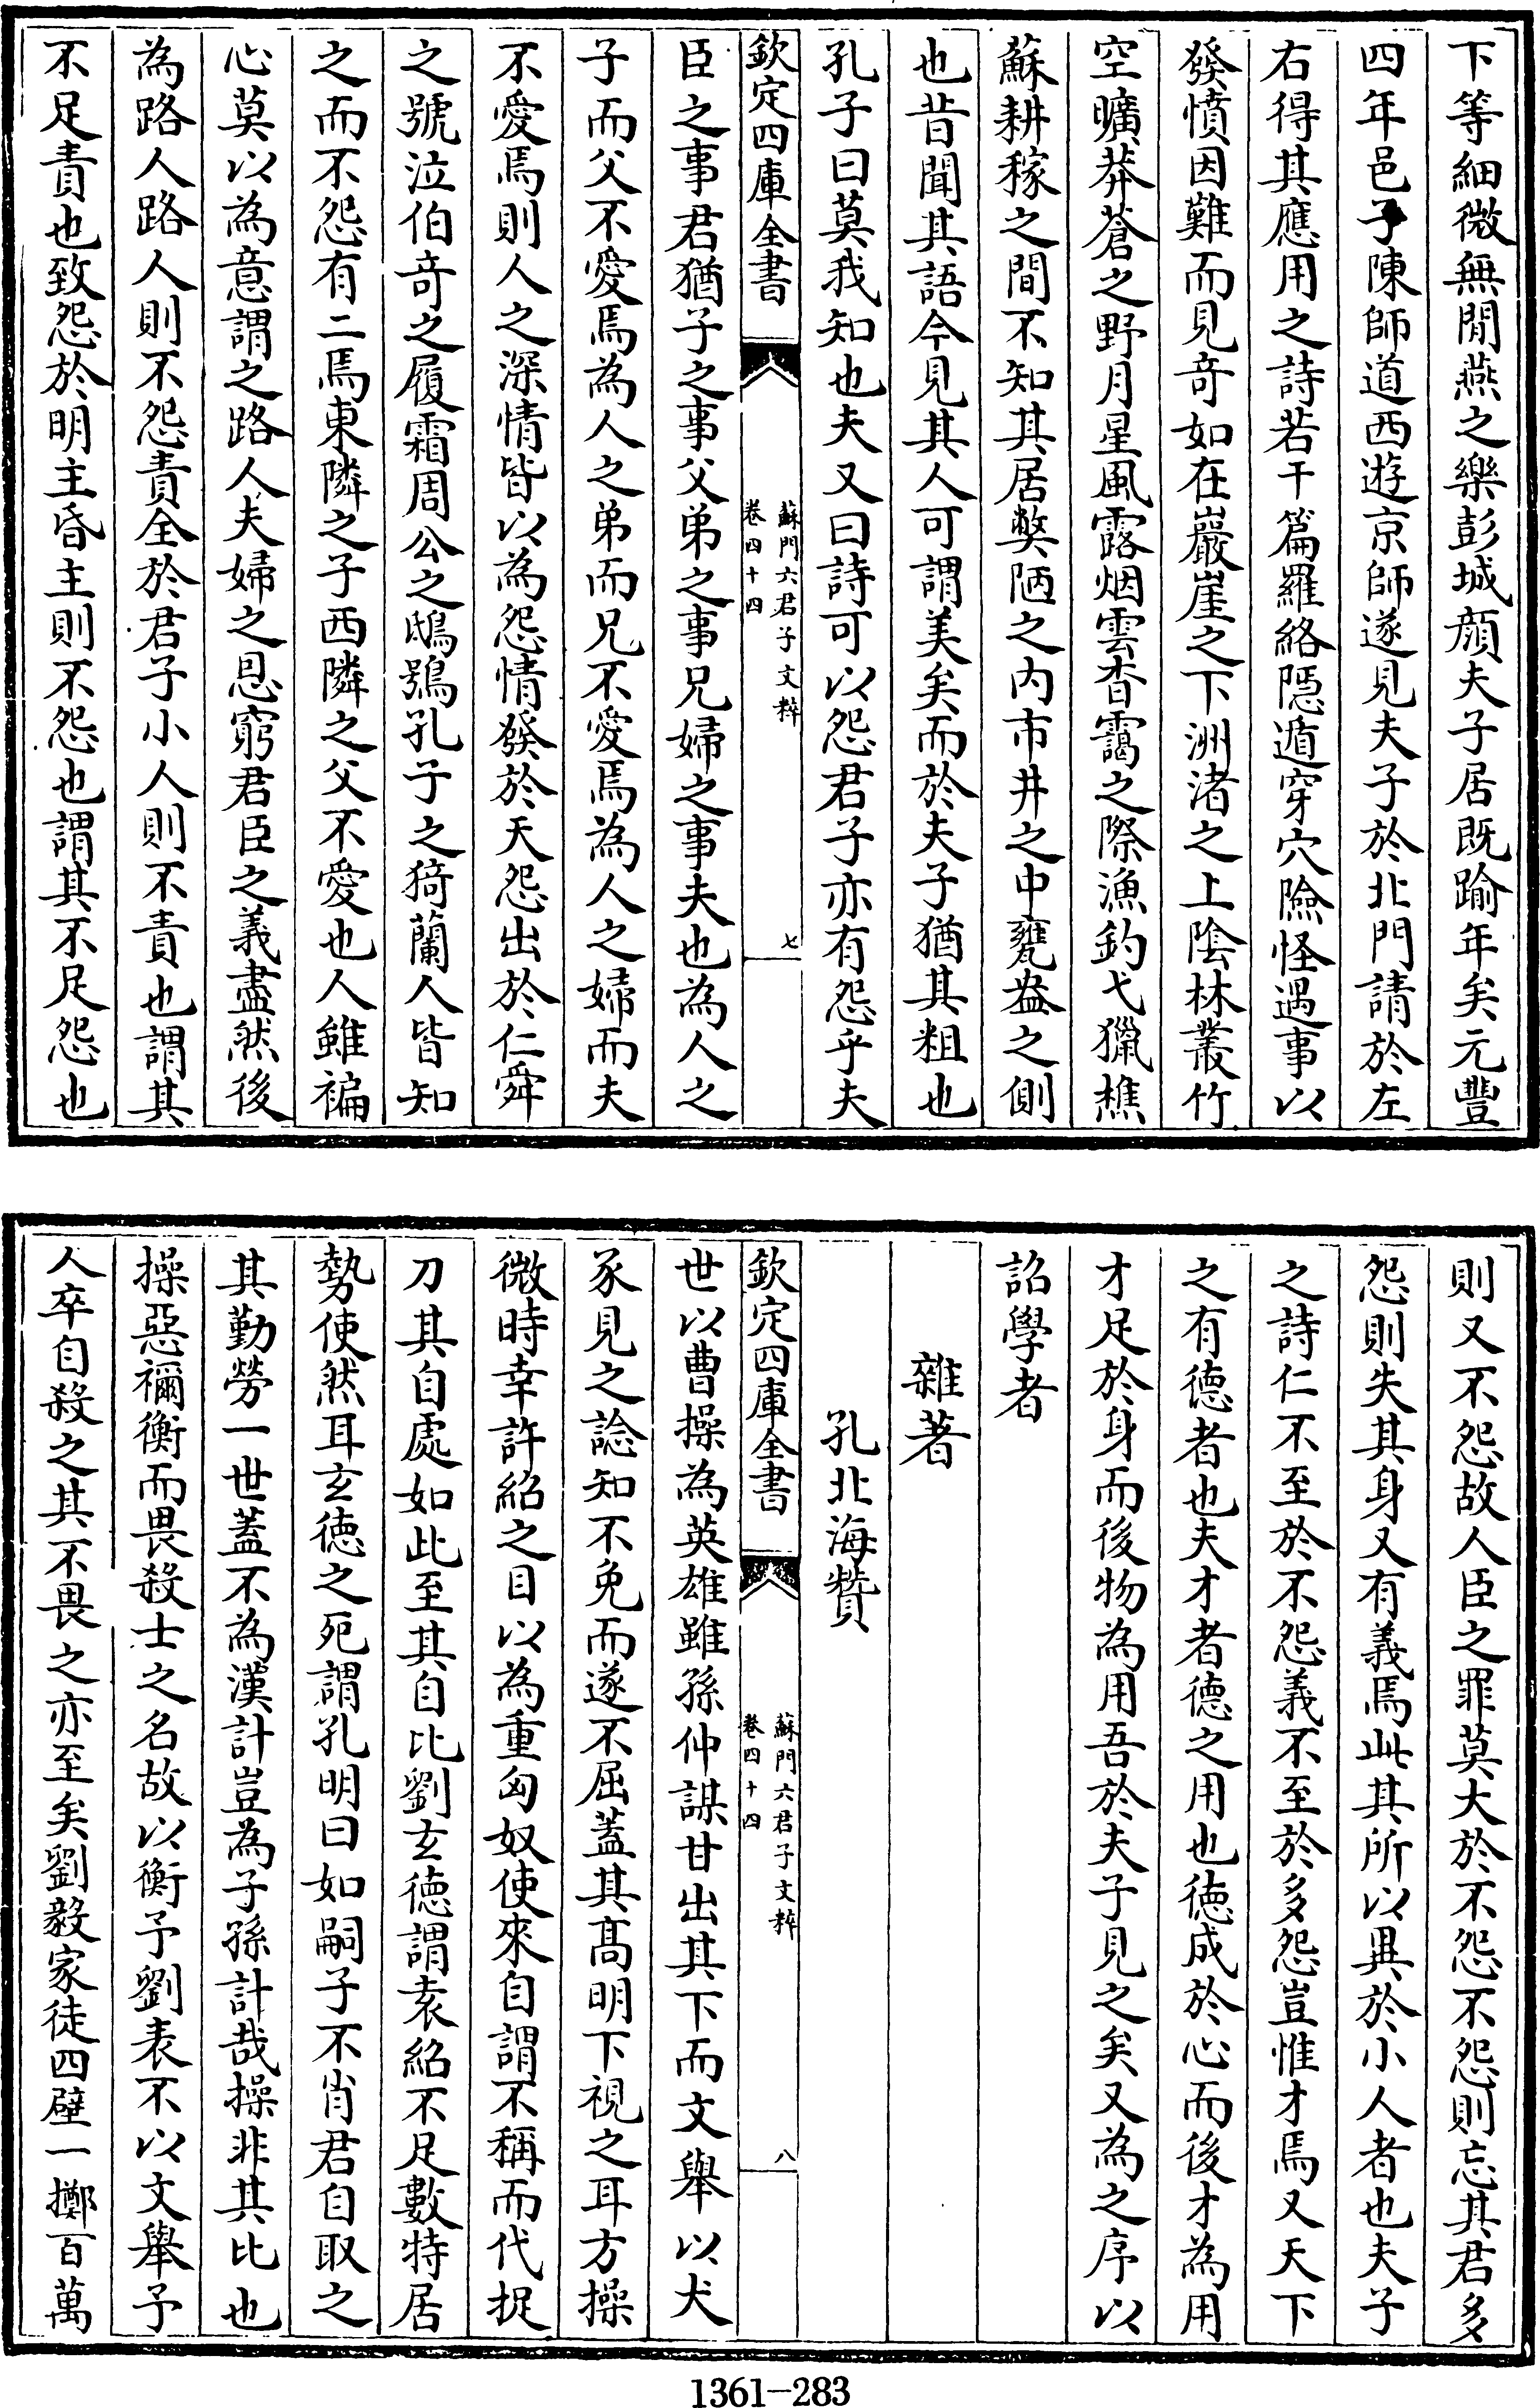 下等細微無閒燕之樂彭城顔夫子居既踰年矣元豐
四年邑子陳師道西遊京師遂見夫子於北門請於左
右得其應用之詩若干篇羅絡隠遁穿穴險怪遇事以
發憤因難而見竒如在巖崖之下洲渚之上隂林叢竹
空曠莽蒼之野月星風露烟雲杳靄之際漁釣弋獵樵
蘇耕稼之間不知其居獘陋之内市井之中甕盎之側
也昔聞其語今見其人可謂美矣而於夫子猶其粗也
孔子曰莫我知也夫又曰詩可以怨君子亦有怨乎夫
欽定四庫全書
蘇門六君子文粹
卷四十四
七
臣之事君猶子之事父弟之事兄婦之事夫也為人之
子而父不愛焉為人之弟而兄不愛焉為人之婦而夫
不愛焉則人之深情皆以為怨情發於天怨出於仁舜
之號泣伯竒之履霜周公之鴟鴞孔子之猗蘭人皆知
之而不怨有二焉東隣之子西隣之父不愛也人雖褊
心莫以為意謂之路人夫婦之恩窮君臣之義盡然後
為路人路人則不怨責全於君子小人則不責也謂其
不足責也致怨於明主昏主則不怨也謂其不足怨也
則又不怨故人臣之罪莫大於不怨不怨則忘其君多
怨則失其身又有義焉此其所以異於小人者也夫子
之詩仁不至於不怨義不至於多怨豈惟才焉又天下
之有德者也夫才者德之用也德成於心而後才為用
才足於身而後物為用吾於夫子見之矣又為之序以
詔學者
雜著
孔北海贊
欽定四庫全書
蘇門六君子文粹
卷四十四
八
世以曹操為英雄雖孫仲謀甘出其下而文舉以犬
豕見之諗知不免而遂不屈蓋其髙明下視之耳方操
微時幸許紹之目以為重匈奴使來自謂不稱而代捉
刀其自處如此至其自比劉玄德謂袁紹不足數特居
勢使然耳玄德之死謂孔明曰如嗣子不肖君自取之
其勤勞一世蓋不為漢計豈為子孫計哉操非其比也
操惡禰衡而畏殺士之名故以衡予劉表不以文舉予
人卒自殺之其不畏之亦至矣劉毅家徒四壁一擲百萬
1361-283